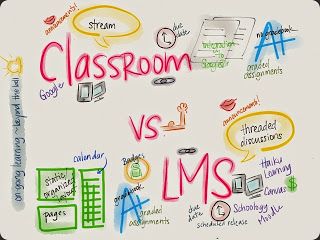 announcements!
stream
due
date
no gradebook
A+
graded
assignments
Classroom
Google
on-going learning ~ beyond the bell
vs
announcements!
threaded
discussions
calendar
static
organized
pages
Badges
gradebook
A+
graded
assignments
LMS
due
date
scheduled release
Haiku
Learning
Canvas $
Schoology
Moodle